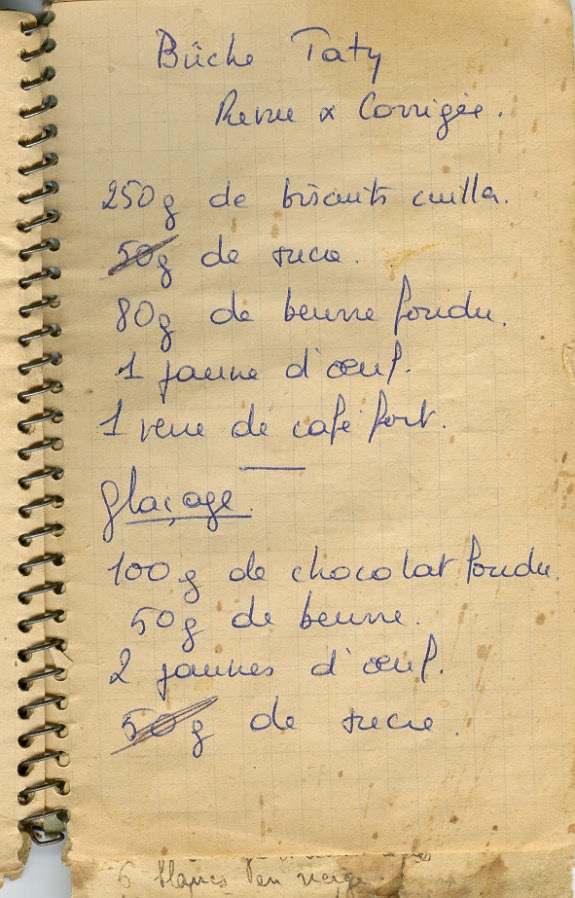 Bûche Taty
Revue x Corrigée.
250g de biscuits cuilla.
50g de sucre.
80g de beurre fondu.
1 jaune d'œuf.
1 verre de café fort.
glaçage
100g de chocolat fondu.
50g de beurre.
2 jaunes d'œuf.
50g de sucre.
6 blancs en neige